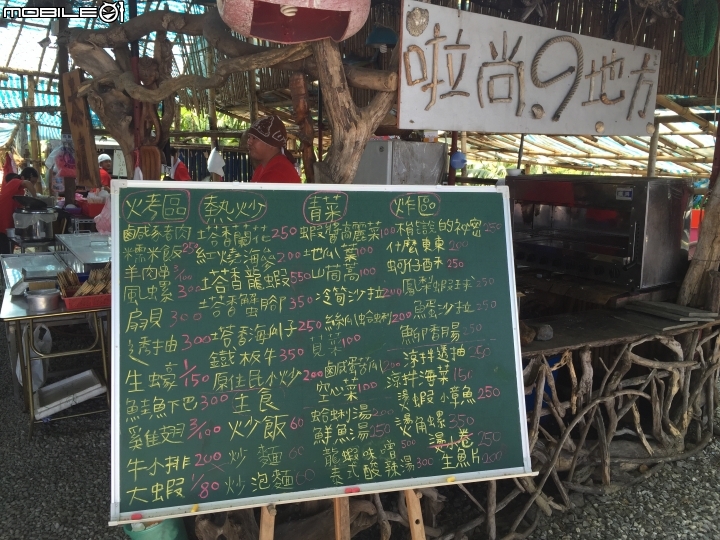 mobile01
啦尚の地方
烤區
鹹豬肉
糯米飯 25
羊肉串 3/100
風螺 300
扇貝 300
透抽 300
生蠔 1/150
鮭魚下巴 300
雞翅 3/100
牛小排 200
大蝦 1/80
熱炒
塔香蘭花 250
紅燒海參 200
塔香龍蝦 550
塔香蟹腳 350
塔香海瓜子 250
鐵板牛 350
原住民小炒 200
主食
炒飯 60
炒麵 60
炒泡麵 60
青菜
蝦醬高麗菜 100
地瓜葉 100
山茼萵 100
冷筍沙拉 200
絲瓜蛤蜊 200
見菜 100
鹹蛋苦瓜 200
空心菜 100
蛤蜊湯 200
鮮魚湯 250
龍蝦味噌 500
泰式酸辣湯 300
炸區
不能說的祕密 250
什麼東東 200
蚵仔酥 250
鳳梨蝦球 250
魚蛋沙拉 250
魷香腸 250
涼拌透抽 250
涼拌海菜 150
燙蝦 小章魚 250
燙角螺 350
燙小卷 250
生魚片 200